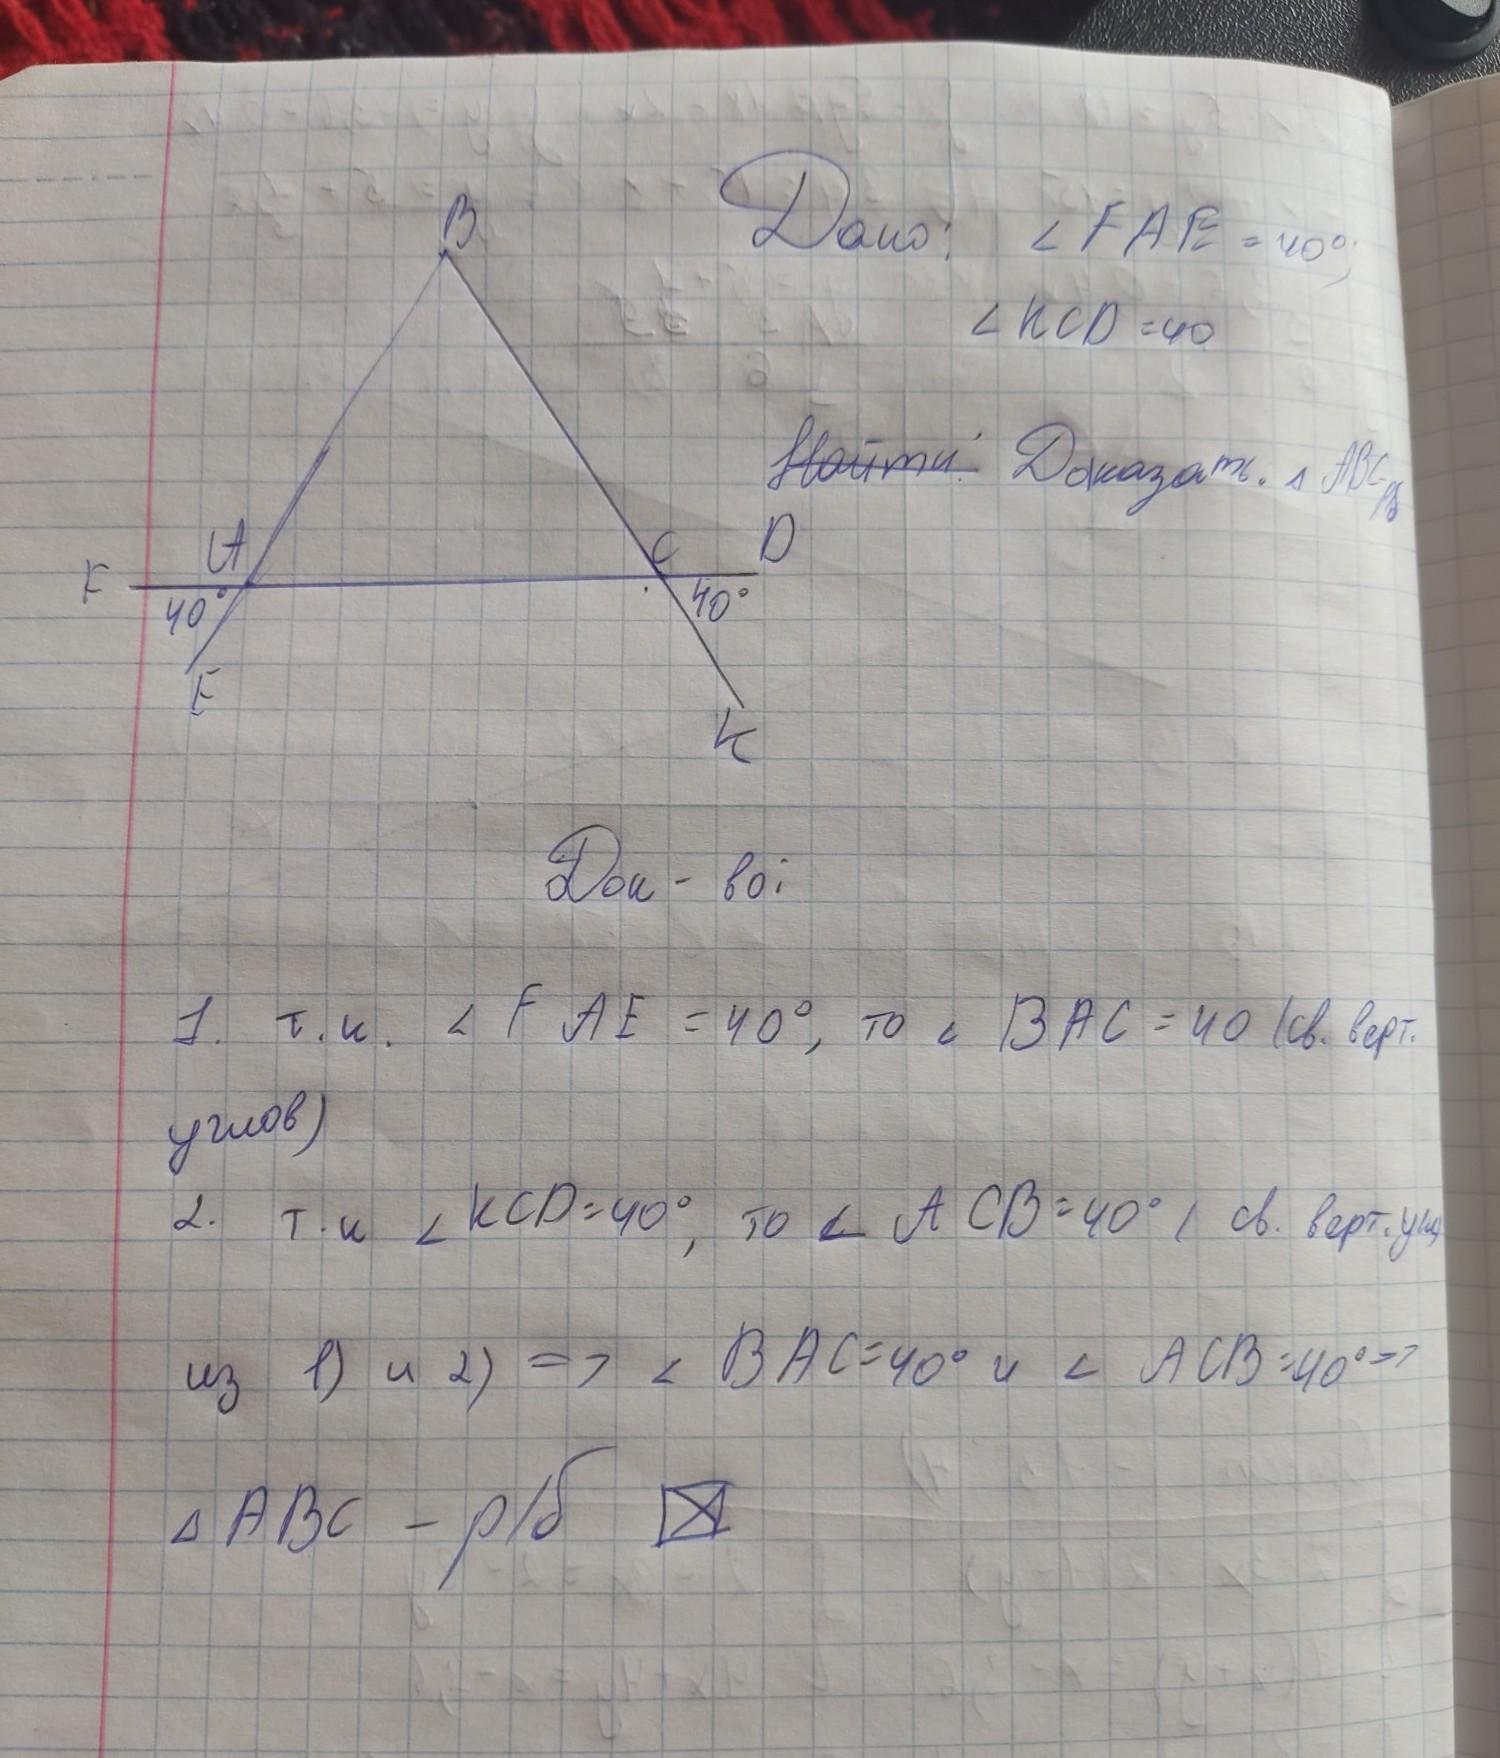 B
Дано: ∠ FAE = 40°;
∠ KCD = 40
Найти: Доказать. △ ABC р/б
A
C
D
F
40°
40°
E
K
Док-во:
1. т.к. ∠ FAE = 40°, то ∠ BAC = 40 (св. верт.
углов)
2. т.к ∠ KCD = 40°, то ∠ ACB = 40° ( св. верт. угл
из 1) и 2) => ∠ BAC = 40° и ∠ ACB = 40° =>
△ ABC - р/б